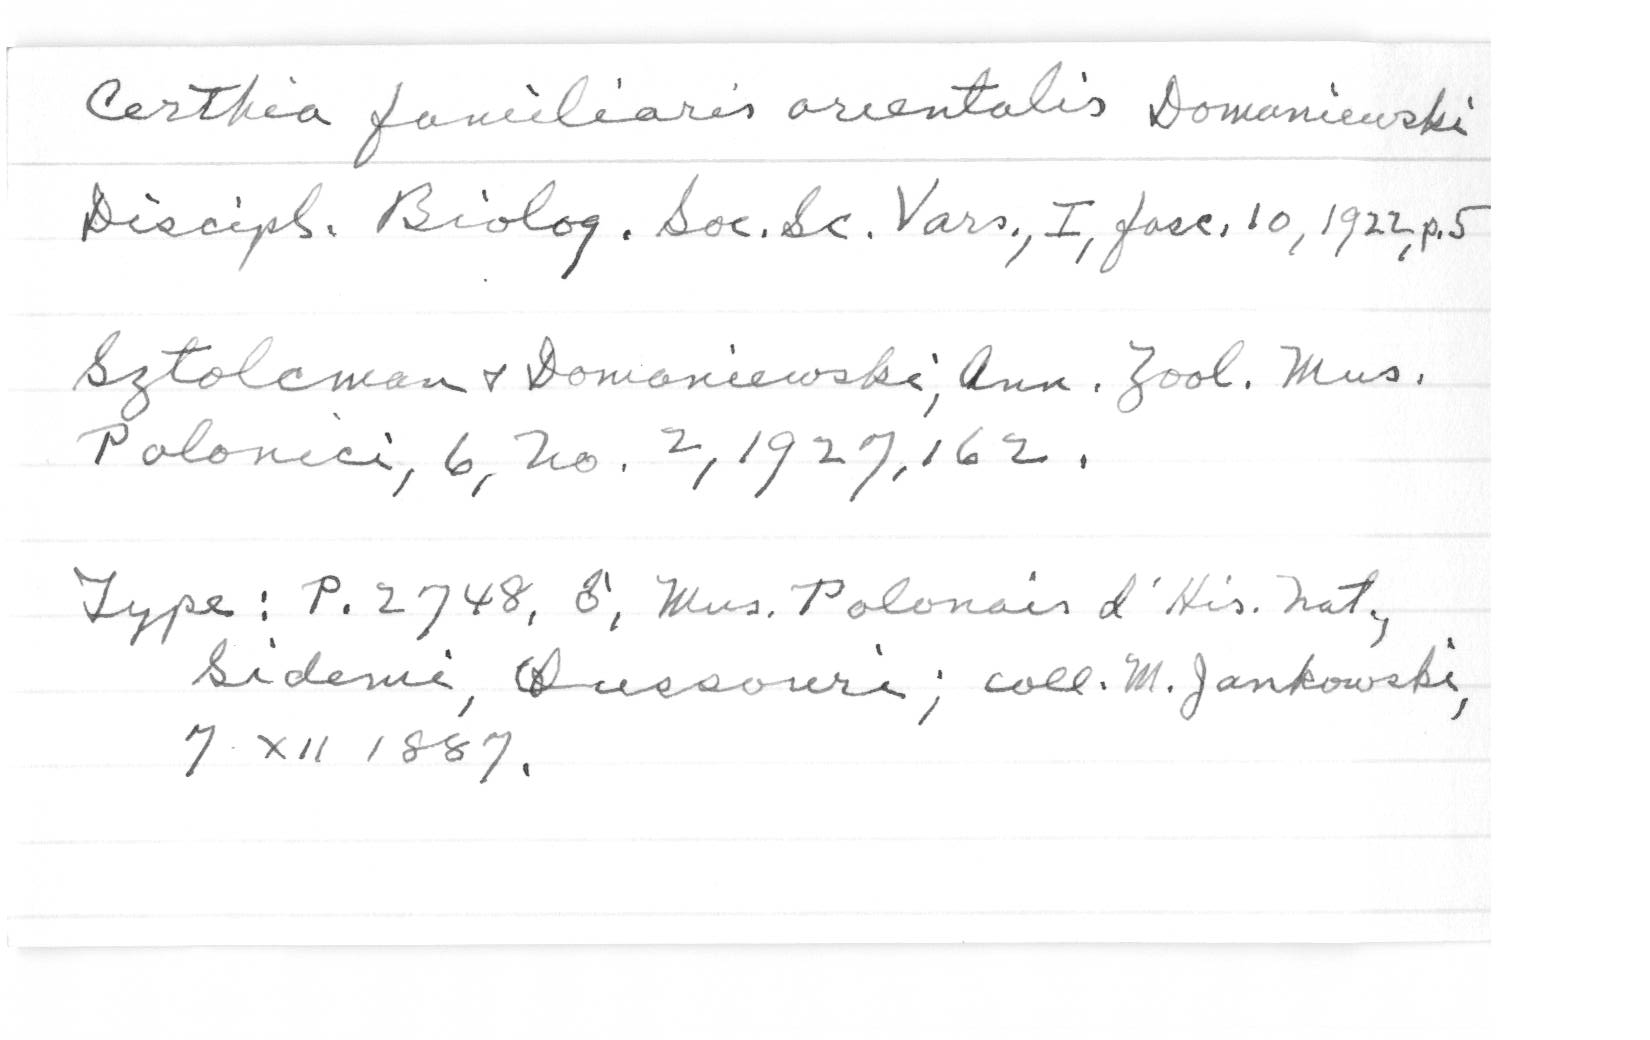 Certhia familiaris orientalis Domaniewski
Discipl. Biolog. Soc. Sc. Vars., I, fasc. 10, 1922, p.5
Sztolcman & Domaniewski, Ann. Zool. Mus.
Polonici, 6, no. 2, 1927, 162.
Type: P. 2748, ♂, Mus. Polonais d'His. Nat.,
Sidemi, Oussouri; coll. M. Jankowski,
7 XII 1887.